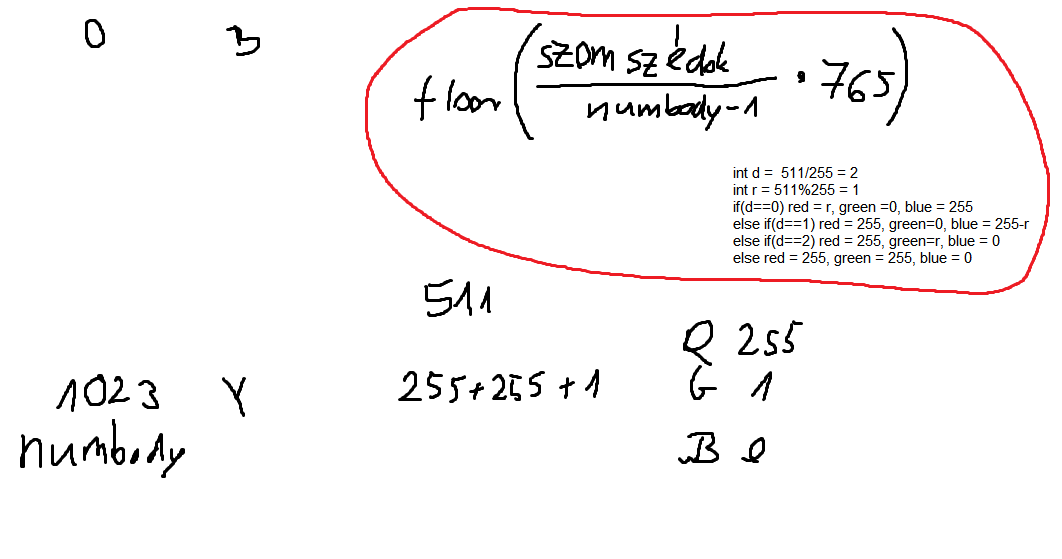 0 B
floor(szomszédok/numbody-1 · 765)
int d = 511/255 = 2
int r = 511%255 = 1
if(d==0) red = r, green =0, blue = 255
else if(d==1) red = 255, green=0, blue = 255-r
else if(d==2) red = 255, green=r, blue = 0
else red = 255, green = 255, blue = 0
511
R 255
1023 Y 255+255+1 G 1
numbody B 0